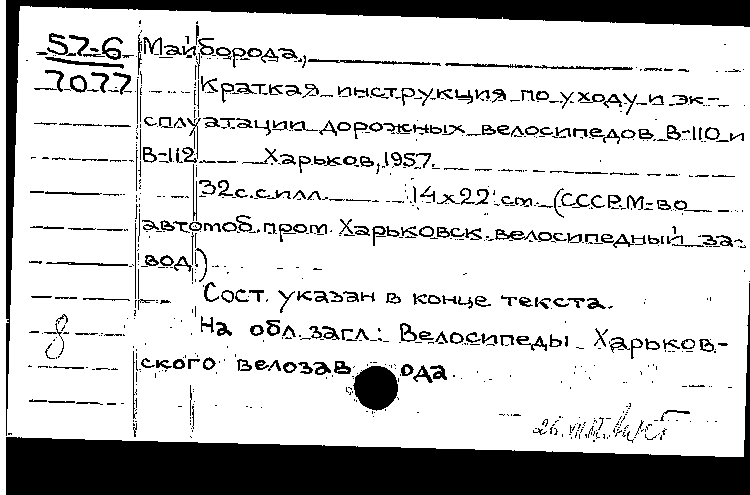 57-6 Майборода,
7077 Краткая инструкция по уходу и эк-
сплуатации дорожных велосипедов В-110 и
В-112 Харьков, 1957.
32 с. с илл. 14 х 22 см. (СССР. М-во
автомоб. пром. Харьковск. велосипедный за-
вод)
Сост. указан в конце текста.
8 На обл. загл.: Велосипеды Харьков-
ского велозавода.